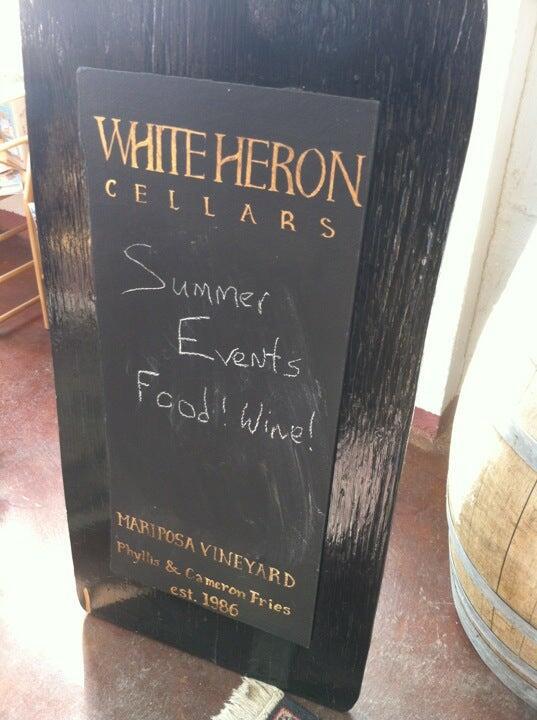 WHITE HERON
CELLARS
Summer
Events
Food! Wine!
MARIPOSA VINEYARD
Phyllis & Cameron Fries
est. 1986